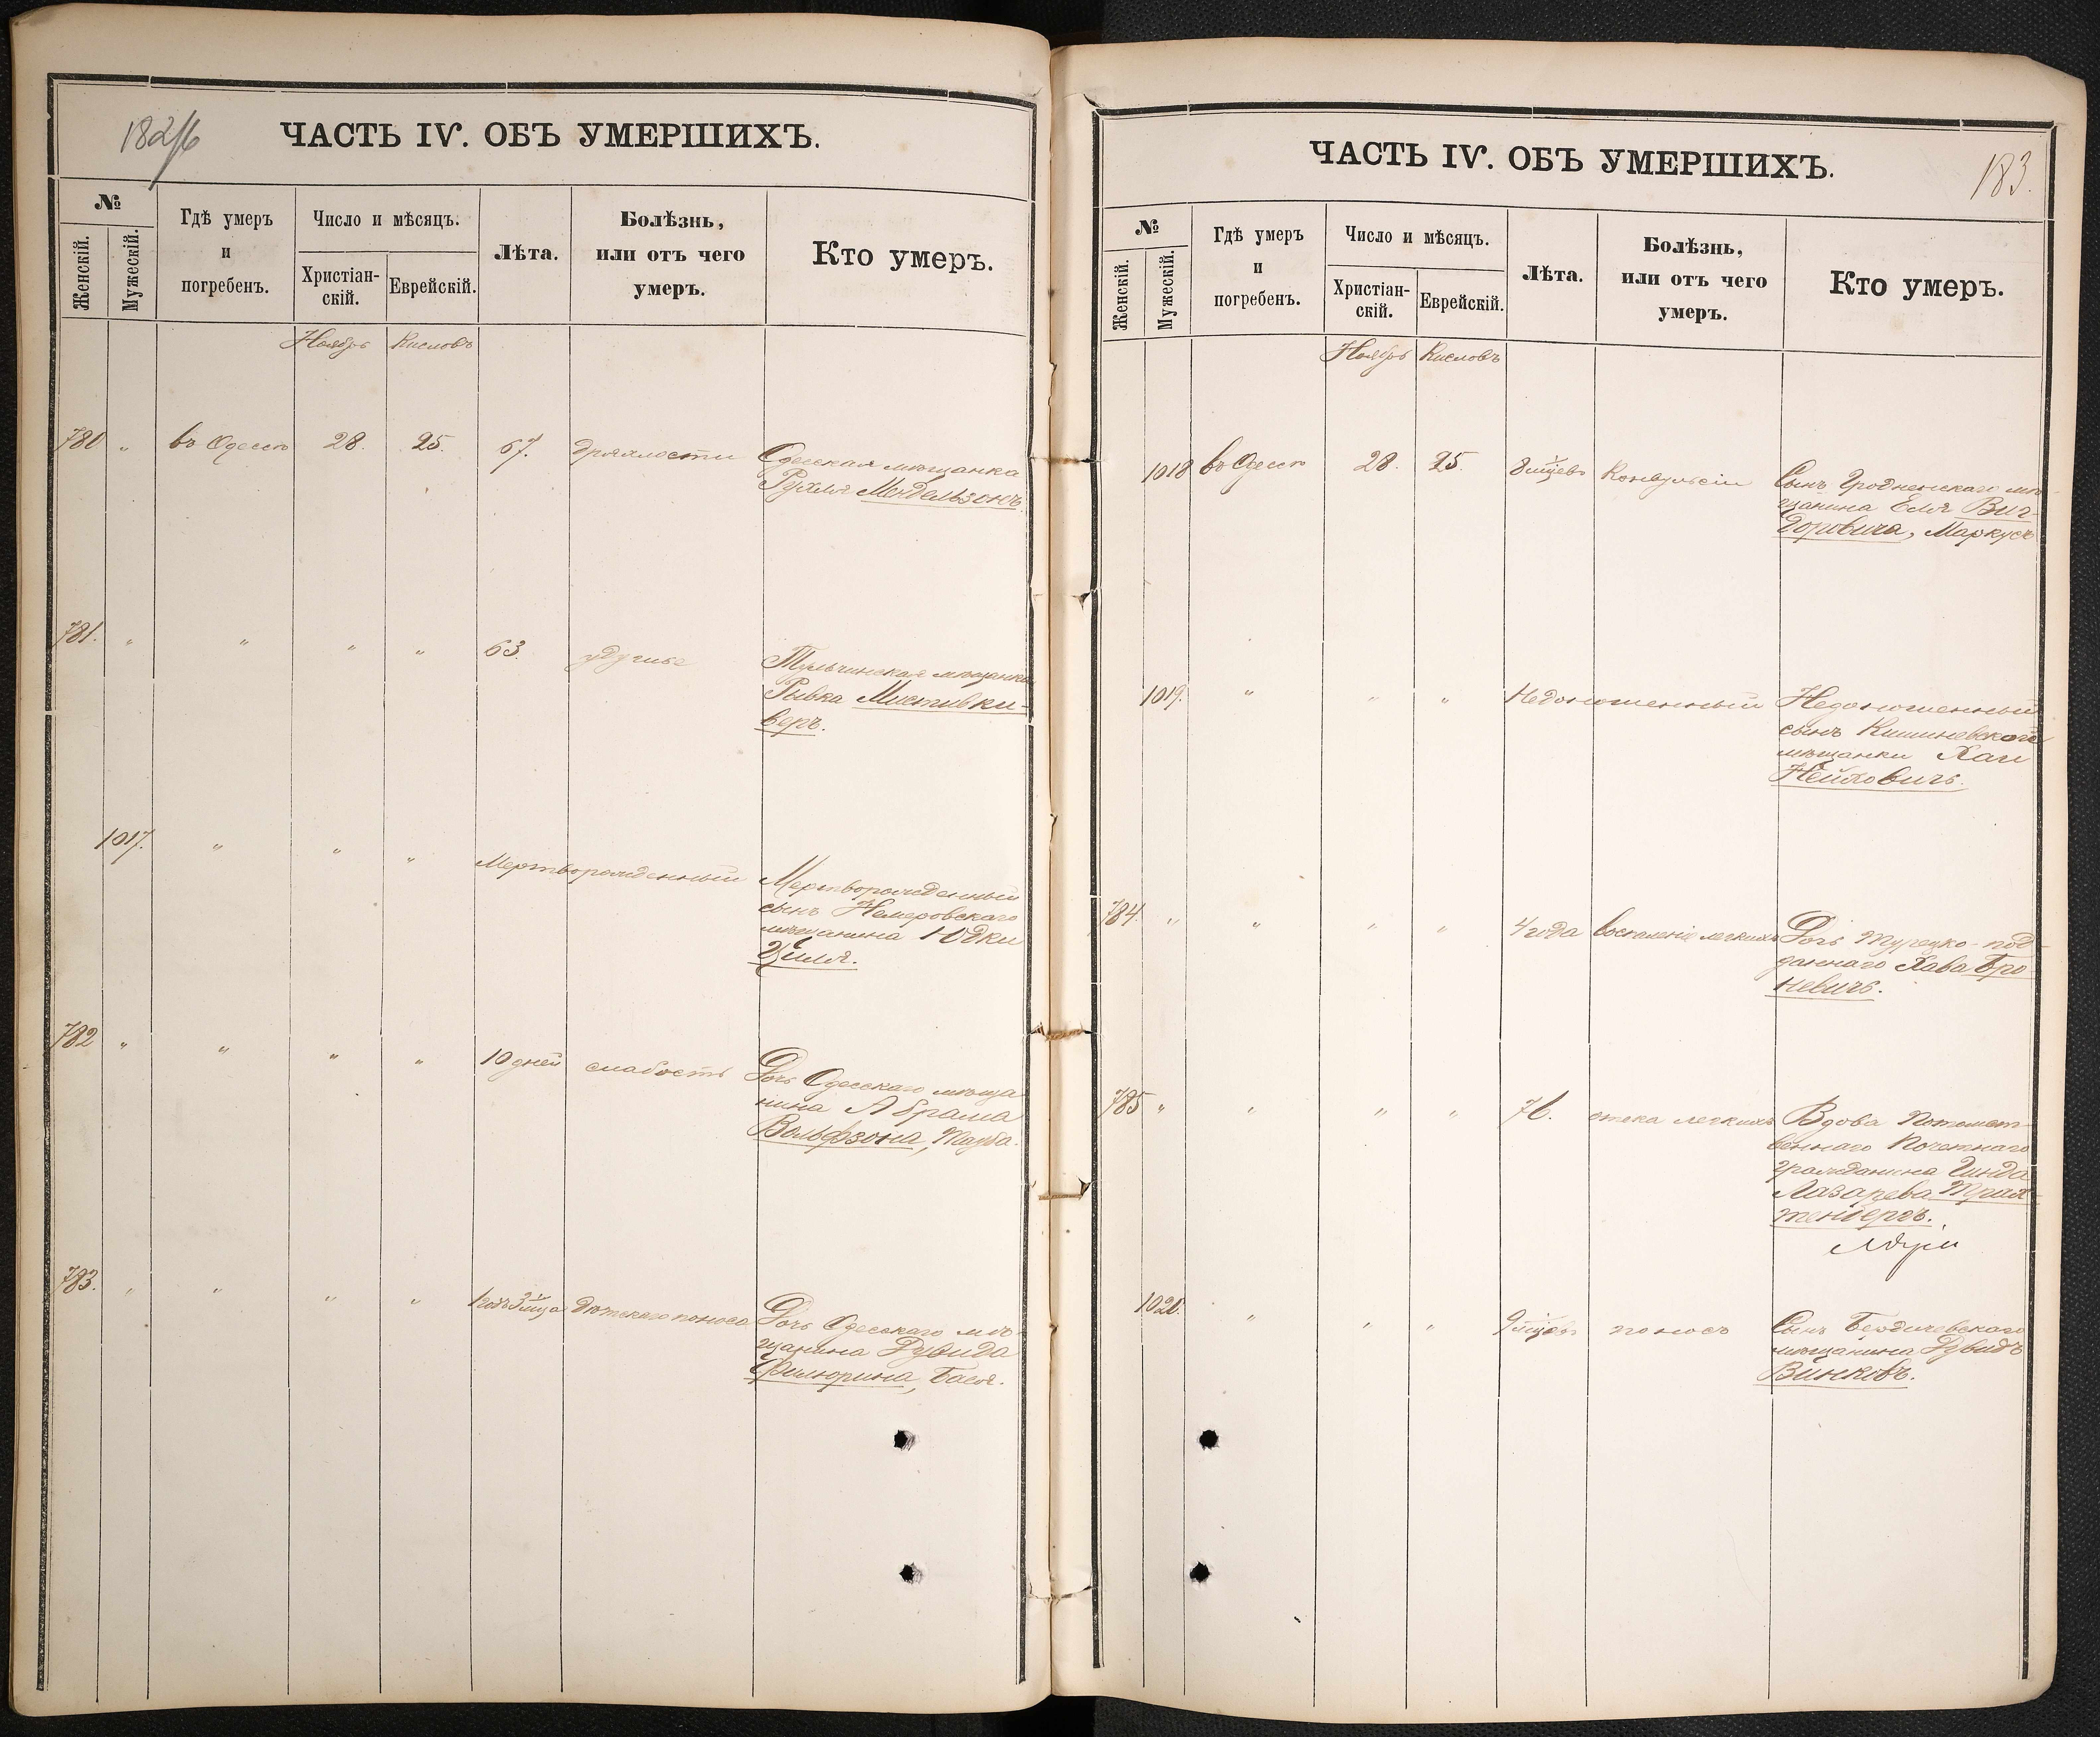 182/6
ЧАСТЬ IV. ОБЪ УМЕРШИХЪ.
№
Женскій.
Мужескій.
Гдѣ умеръ
и
погребенъ.
Число и мѣсяцъ.
Христіан-
скій.
Еврейскій.
Лѣта.
Болѣзнь,
или отъ чего
умеръ.
Кто умеръ.
Ноябрь Кисловъ
780 " въ Одессѣ 28. 25. 67. дряхлости Одесская мѣщанка
Рухля Мендельзонъ.
781. " " " " 63. удушье Тульчинская мѣщанка
Рывка Мистивки-
веръ.
1017. " " " Мертворожденный Мертворожденный
сынъ Немеровскаго
мѣщанина Юдки
Циля.
782 " " " " 10 дней слабость Дочь Одесскаго мѣща
нина Абрама
Вольфзона, Тауба.
783. " " " " 1 годъ 3 мѣца дѣтскаго поноса Дочь Одесскаго мѣ-
щанина Рувида
Филюрина, Бася.
ЧАСТЬ IV. ОБЪ УМЕРШИХЪ.
183.
№
Женскій.
Мужескій.
Гдѣ умеръ
и
погребенъ.
Число и мѣсяцъ.
Христіан-
скій.
Еврейскій.
Лѣта.
Болѣзнь,
или отъ чего
умеръ.
Кто умеръ.
Ноябрь Кисловъ
1018 въ Одессѣ 28. 25. 8 мѣцевъ Конвульсіи Сынъ Гродненскаго мѣ-
щанина Еля Виг-
доровича, Маркусъ
1019. " " " Недоношенный Недоношенный
сынъ Кишиневской
мѣщанки Хаи
Нейховичъ.
784. " " " " 4 года воспаленіе легкихъ Дочь Турецко-под-
даннаго Хава Бро-
невичъ.
785 " " " " 76. отека легкихъ Вдова Потомст-
веннаго Почетнаго
гражданина Гинда
Лазарева Трах-
тенбергъ.
1020. " " " 9 мѣцевъ поносъ Сынъ Бердичевскаго
мѣщанина Рувидъ
Винковъ.